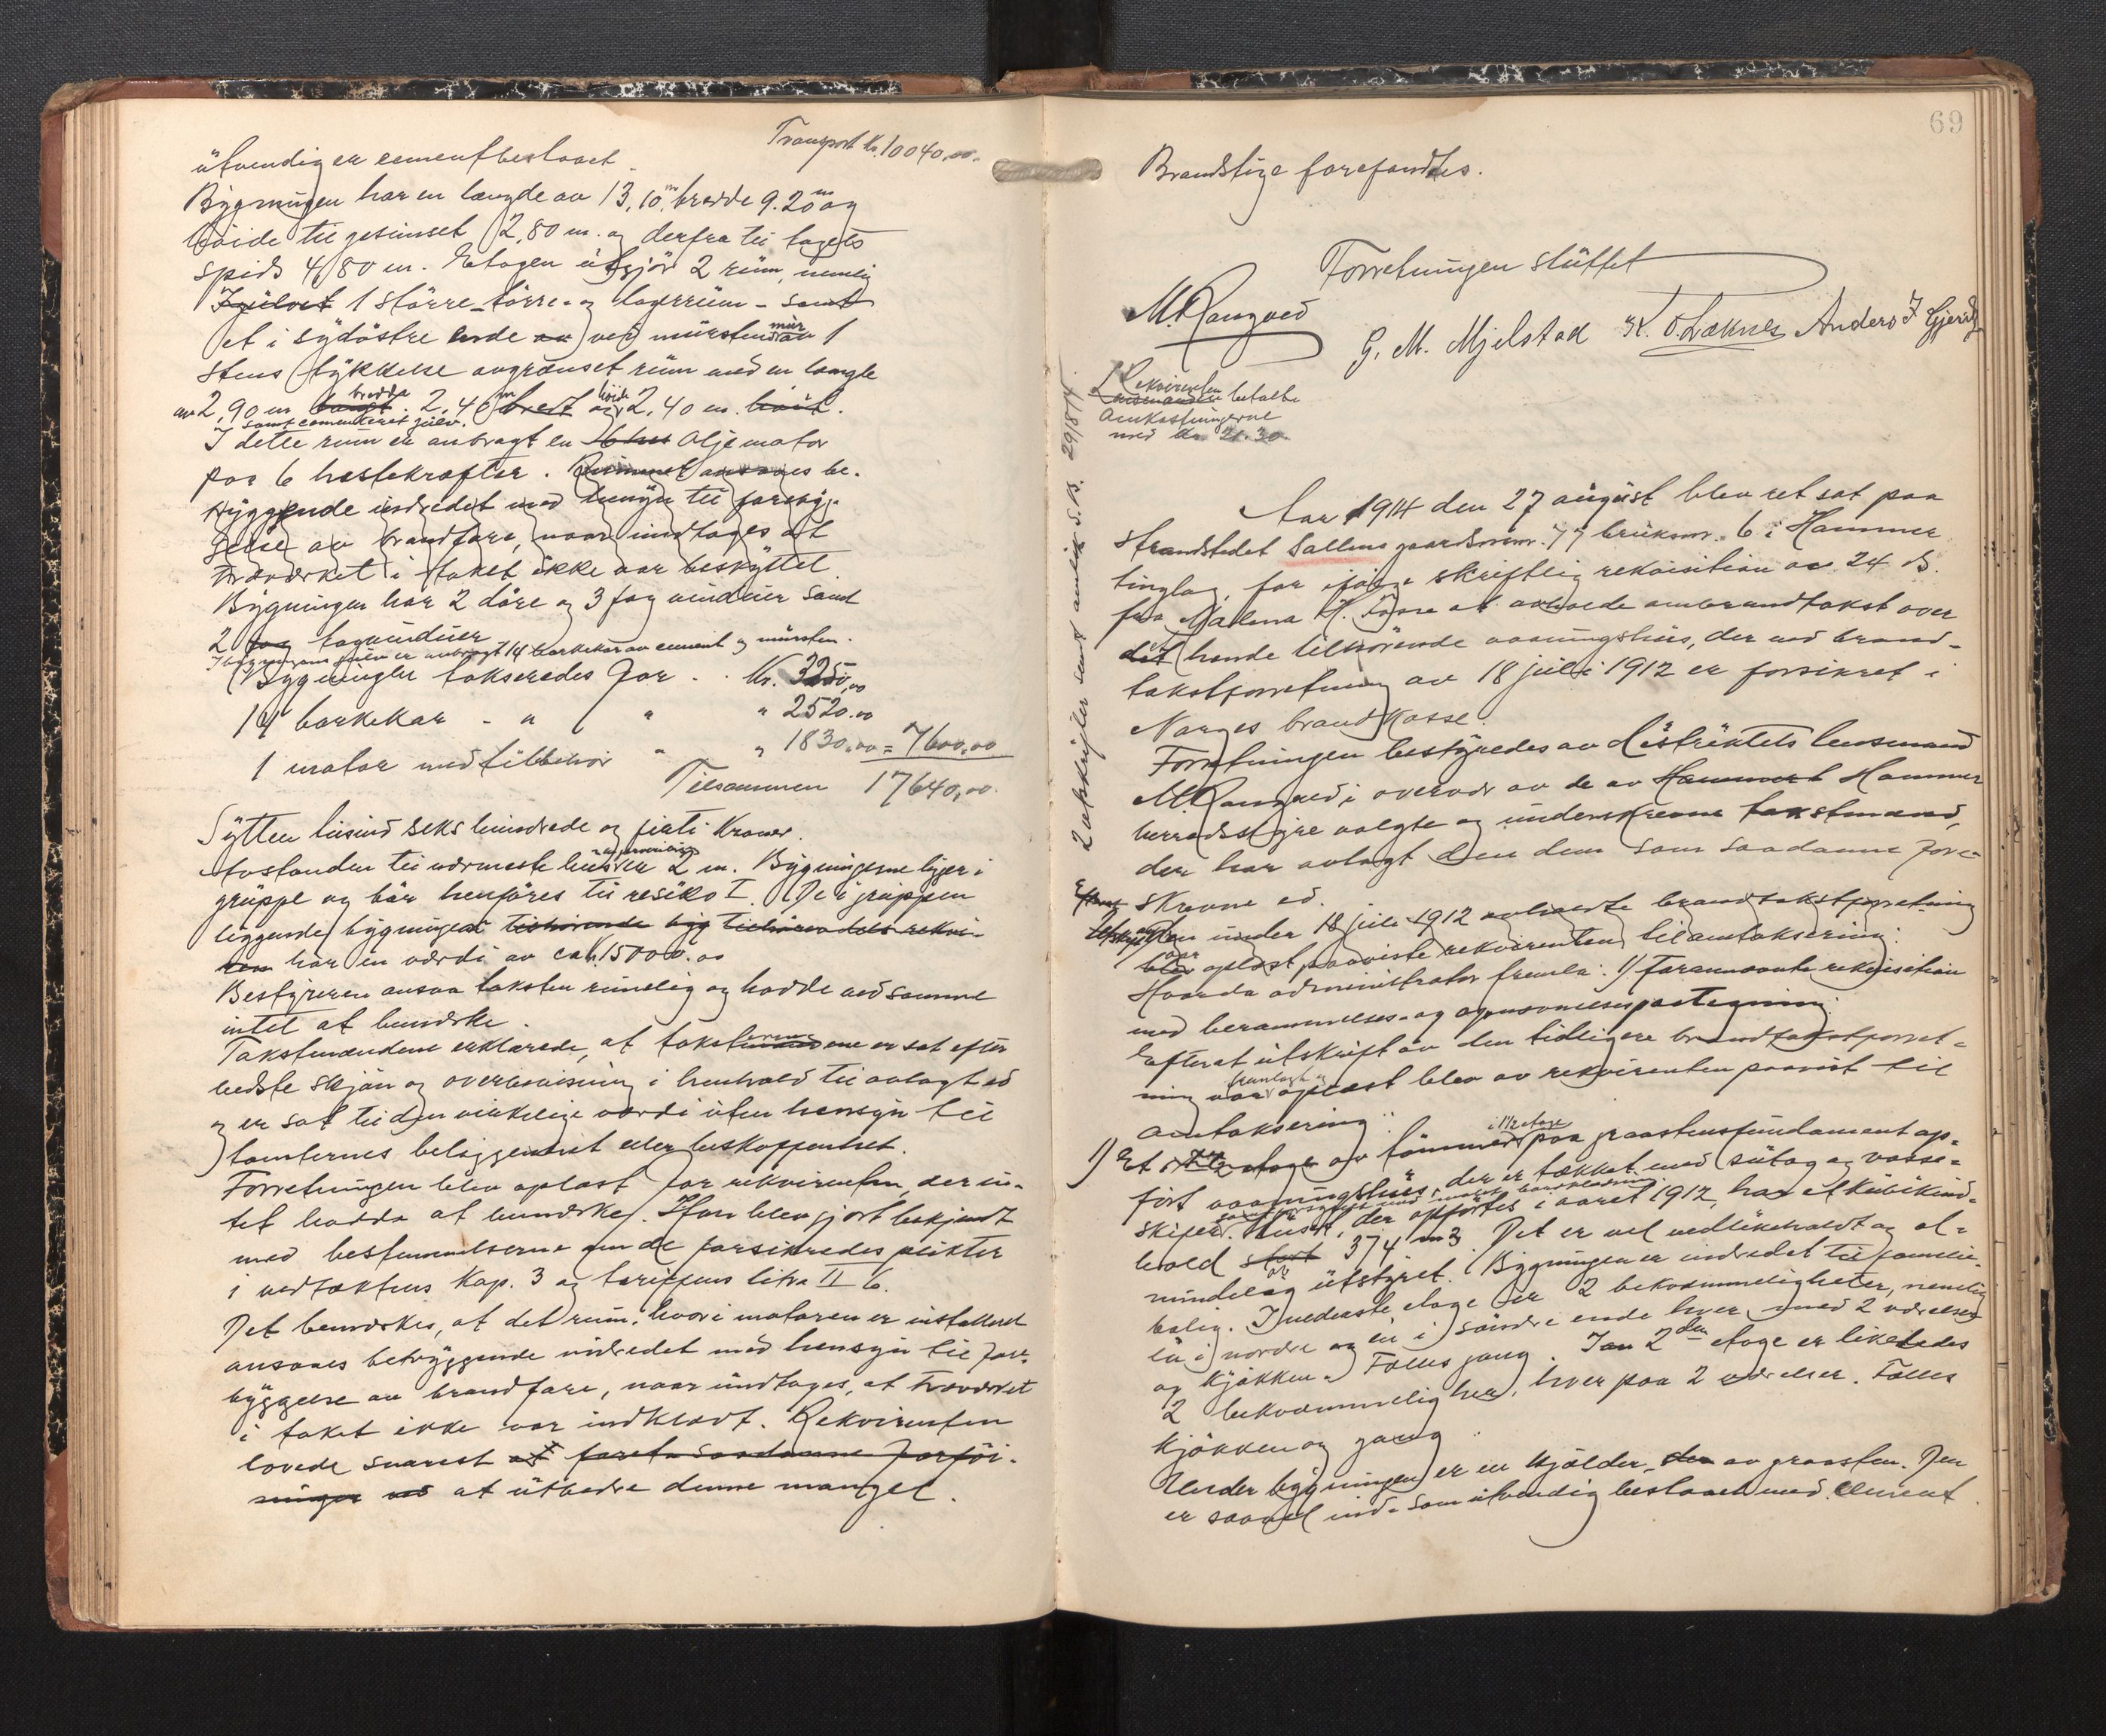 Transport Kr. 10040,00.
utvendig er cementbeslaaet.
Bygningen har en længde av 13,10 m, bredde 9.20 m og
höide til gesimset 2,80 m. og derfra til tagets
spids 4,80 m. Etagen utgjör 2 rum, nemlig
1 större törre- og lagerrum - samt
et i sydöstre ende ved murstens mur av 1
stens tykkelse avgrænset rum med en længde
av 2,90 m bredde 2,40 m höide 2,40 m.
samt cementeret gulv.
I dette rum er anbragt en Oljemotor
paa 6 hestekræfter. Rummet ansaaes be-
tryggende indredet med hensyn til forebyg-
gelse av brandfare, naar undtages at
træværket i taket ikke var beskyttet
Bygningen har 2 döre og 3 fag vinduer samt
2 tagvinduer
I bygningens gulv er anbragt 14 barkekar av cement og mursten.
Bygningen takseredes for . . Kr. 3250,00
14 barkekar - " " " 2520.00
1 motor med tilbehör " " 1830,00 = 7600,00
Tilsammen 17640,00.
Sytten tusind seks hundrede og firti Kroner.
Avstanden til nærmeste hus er 2 m. Bygningerne ligger i
gruppe og bör henföres til resiko I. De i gruppen
liggende bygninger
har en værdi av ca kr. 15000.00
Bestyreren ansaa taksten rimelig og hadde ved samme
intet at bemærke.
Takstmændene erklærede, at taksterne er sat efter
bedste skjön og overbevisning i henhold til avlagt ed
og er sat til den virkelige værdi uten hensyn til
tomternes beliggenhet eller beskaffenhet.
Forretningen blev oplæst for rekvirenten, der in-
tet hadde at bemærke. Han blev gjort bekjendt
med bestemmelserne om de forsikredes plikter
i vedtæktens Kap. 3 og tariffens litra II b.
Det bemærkes, at det rum, hvori motoren er installeret
ansaaes betryggende indredet med hensyn til fore-
byggelse av brandfare, naar undtages, at træværket
i taket ikke var indklædt. Rekvirenten
lovede snarest at foreta saadanne forföi-
ninger at utbedre denne mangel.
69
Brandstige forefandtes.
Forretningen sluttet
M. Rangved
G. M. Mjelstad K. O. Loknes Anders J Gjerde
Rekvirenten betalte
omkostningerne
med kr. 21.30.
2 utskrifter sendt 29/8 14.
Aar 1914 den 27 august blev ret sat paa
strandstedet Salhus gaardsnumr. 77 bruksnr. 6 i Hammer
tinglag, for ifölge skriftlig rekvisition av 24 ds.
fra Malena H. at avholde ombrandtakst over
det hende tilhörende vaaningshus, der ved brand-
takstforretning av 18 juli 1912 er forsikret i
Norges brandkasse.
Forretningen bestyredes av distriktets lensmand
M. Rangved i overvær av de av Hammert Hammer
herredsstyre valgte og underskrevne takstmænd,
der har avlagt den dem som saadanne fore-
skrevne ed.
under 18 juli 1912 avholdte brandtakstforretning
var oplæst paaviste rekvirenten til omtaksering:
Hvorda administrator fremla: 1) Forannævnte rekvisition
med berammelses- og opnævnelsespaategning.
Efterat utskrift av den tidligere brandtakstforret-
ning var fremlagt og oplæst blev av rekvirenten paavist til
omtaksering:
1) Et i 1 1/2 etage av tömmer paa graastensfundament op-
fört vaaningshus, der er tækket med sutag og vosse-
skifer. Huset, der opförtes i aaret 1912, har et kubikind-
hold 374 m3. Det er vel vedlikeholdt og al-
mindelig utstyret. Bygningen er indredet til familie-
bolig. I nederste etage er 2 bekvæmmeligheter, nemlig
en i nordre og en i söndre ende hver med 2 værelser
og kjökken. Fælles gang. I 2den etage er likeledes
2 bekvæmmeligheter, hver paa 2 værelser. Fælles
kjökken og gang.
Under bygningen er en kjælder av graasten. Den
er saavel ind- som utvendig beslaaet med cement.